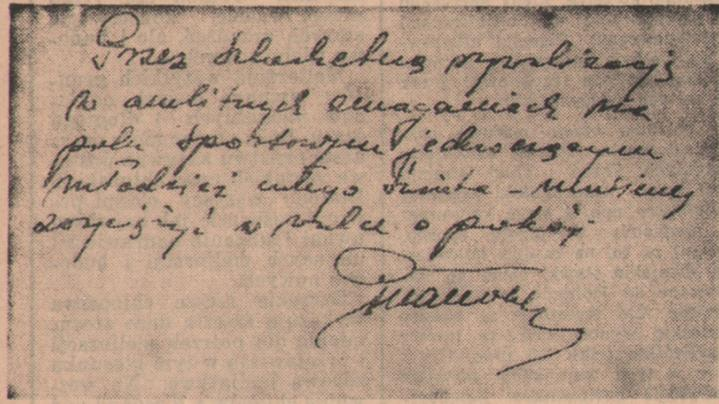 Przez szlachetną rywalizację
w ambitnych zmaganiach na
polu sportowym jednoczącym
młodzież całego świata - musimy
zwyciężyć w walce o pokój.